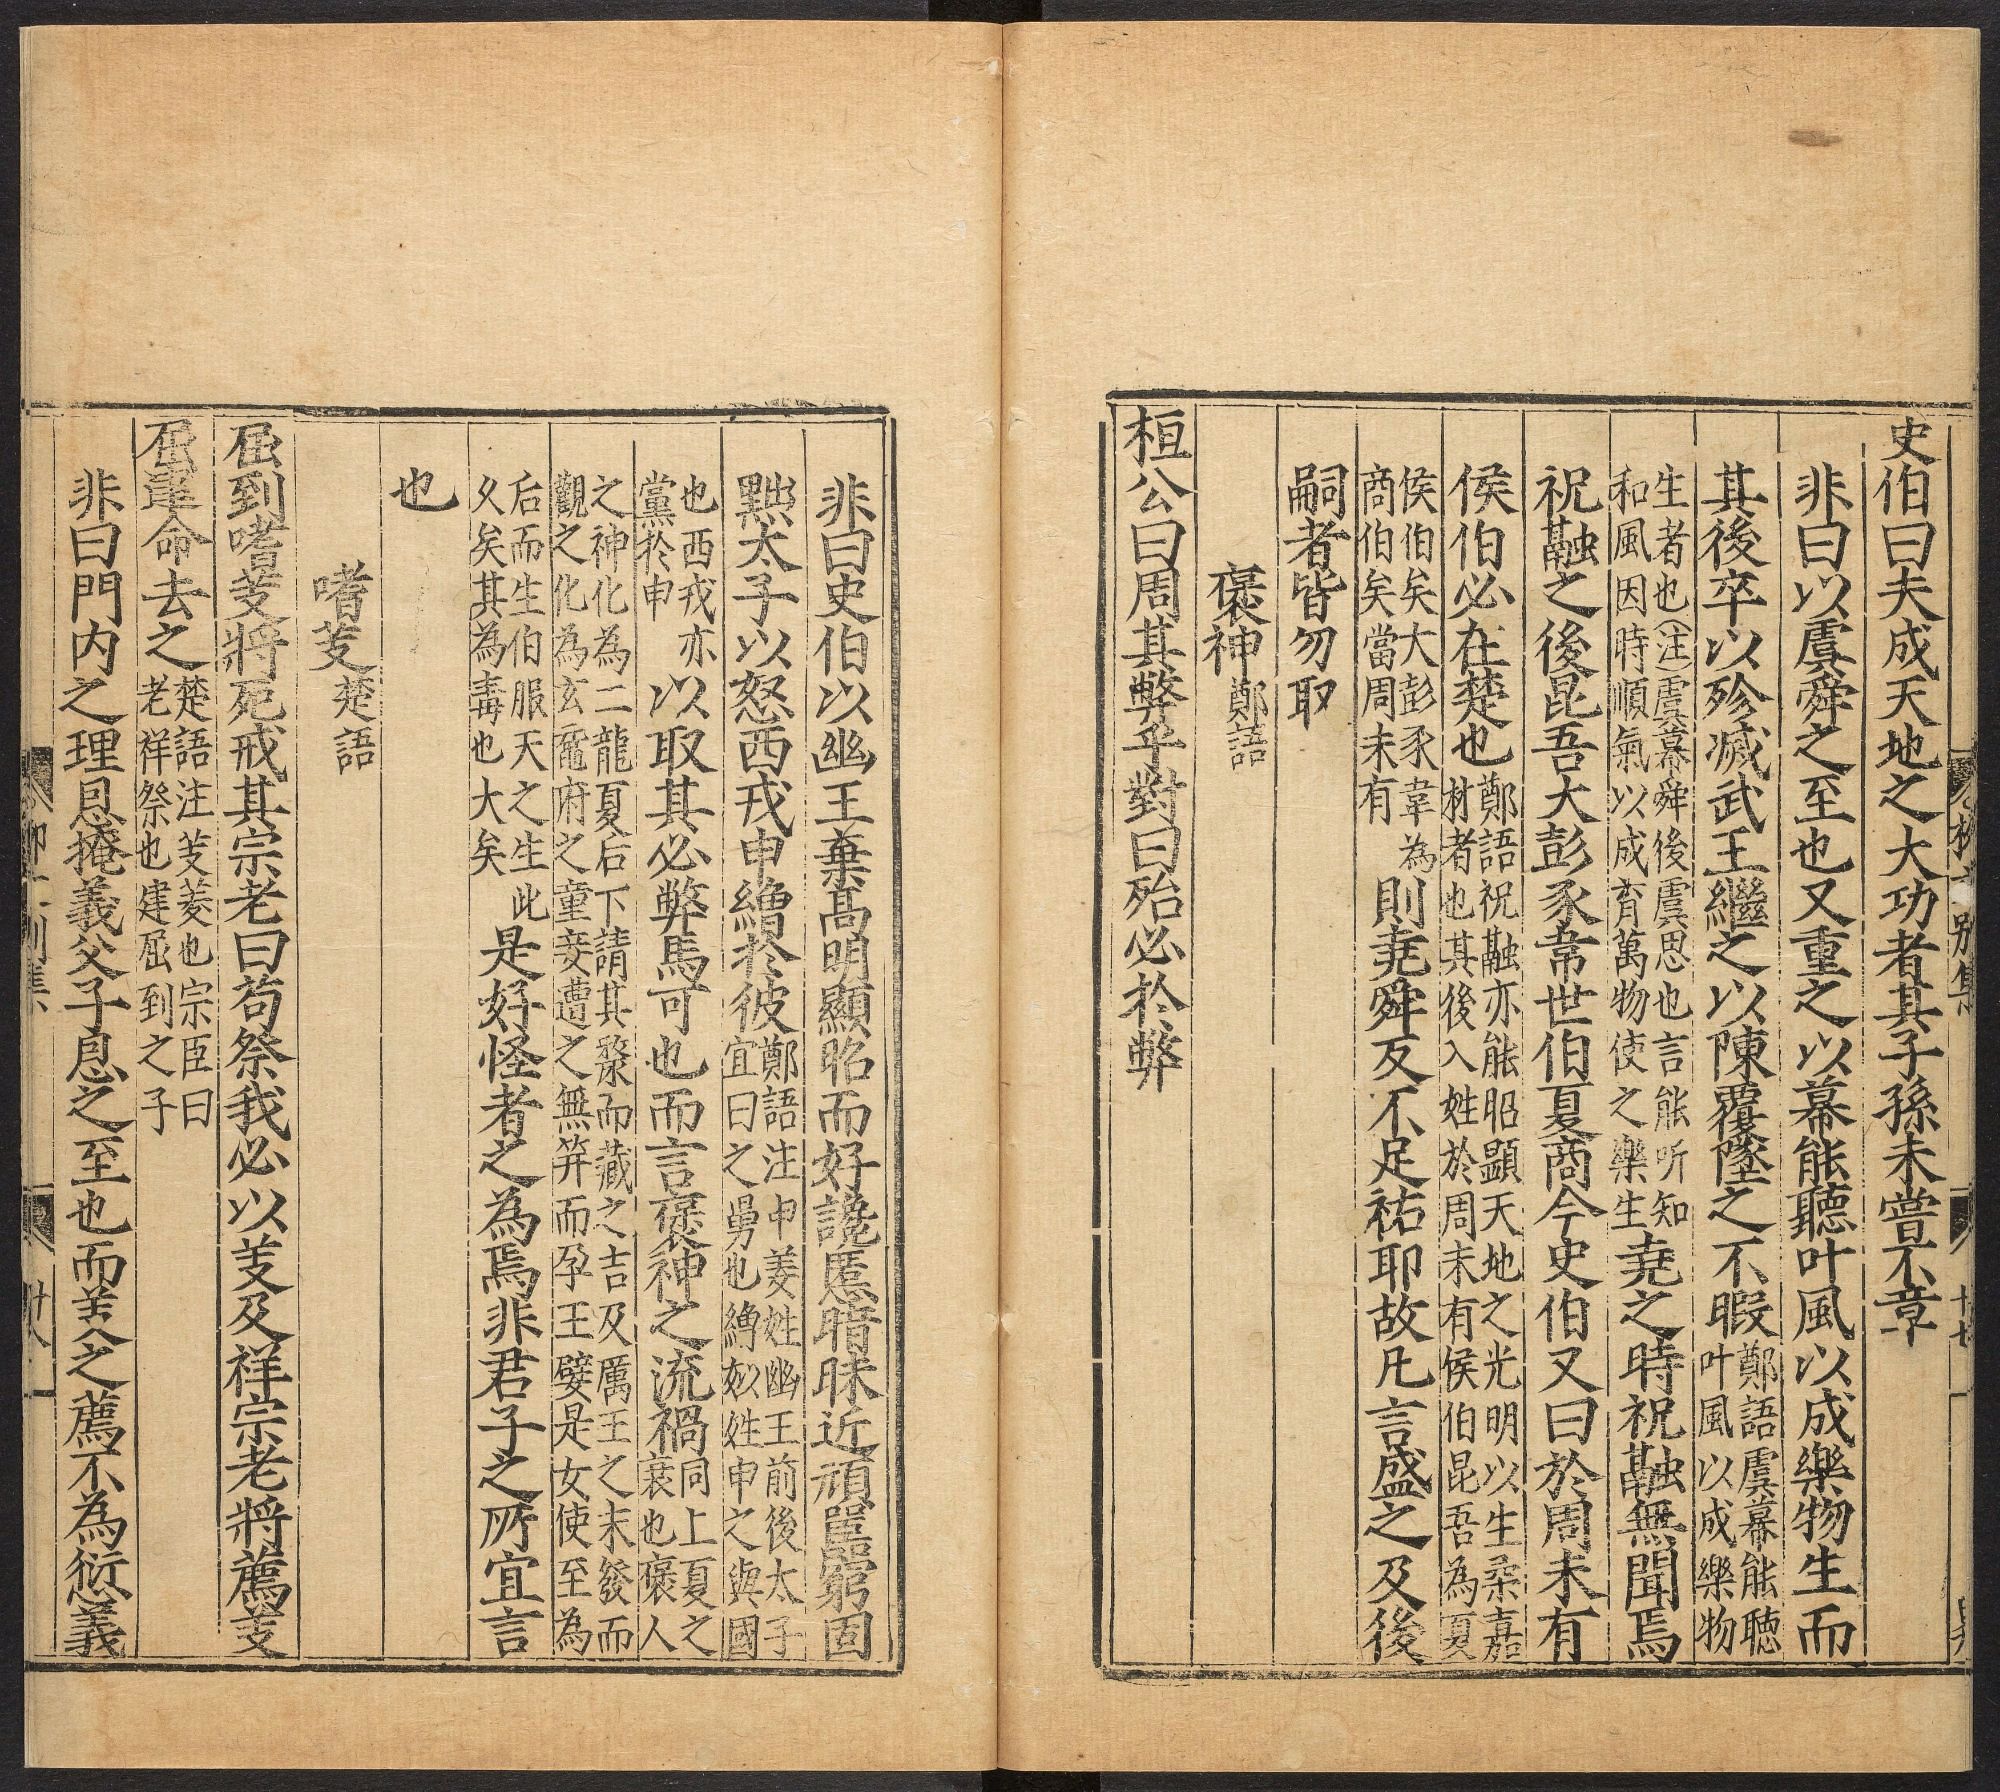 史伯曰夫成天地之大功者其子孫未嘗不章
非曰以虞舜之至也又重之以幕能聽叶風以成樂物生而
其後卒以殄滅武王繼之以陳覆墜之不暇
鄭語虞幕能聽
叶風以成樂物
生者也(注)虞幕舜後虞思也言能听知
和風因時順氣以成育萬物使之樂生
堯之時祝融無聞焉
祝融之後昆吾大彭豕韋世伯夏商今史伯又曰於周未有
侯伯必在楚也
鄭語祝融亦能昭顯天地之光明以生柔嘉
材者也其後入姓於周未有侯伯昆吾為夏
侯伯矣大彭豕韋為
商伯矣當周未有
則堯舜反不足祐耶故凡言盛之及後
嗣者皆勿取
褒神
鄭語
桓公曰周其弊乎對曰殆必於弊
非曰史伯以幽王棄高明顯昭而好讒慝暗昧近頑嚚窮固
黜太子以怒西戎申繒於彼
鄭語注申姜姓幽王前後太子
宜曰之舅也繒姒姓申之與國
也西戎亦
黨於申
以取其必弊焉可也而言褒神之流禍
同上夏之
衰也褒人
之神化為二龍夏后下請其漦而藏之吉及厲王之末發而
觀之化為玄黿府之童妾遭之無笄而孕王嬖是女使至為
后而生伯服天之生此
久矣其為毒也大矣
是好怪者之為焉非君子之所宜言
也
嗜芰
楚語
屈到嗜芰將死戒其宗老曰苟祭我必以芰及祥宗老將薦芰
屈建命去之
楚語注芰菱也宗臣曰
老祥祭也建屈到之子
非曰門內之理恩掩義父子恩之至也而芰之薦不為愆義